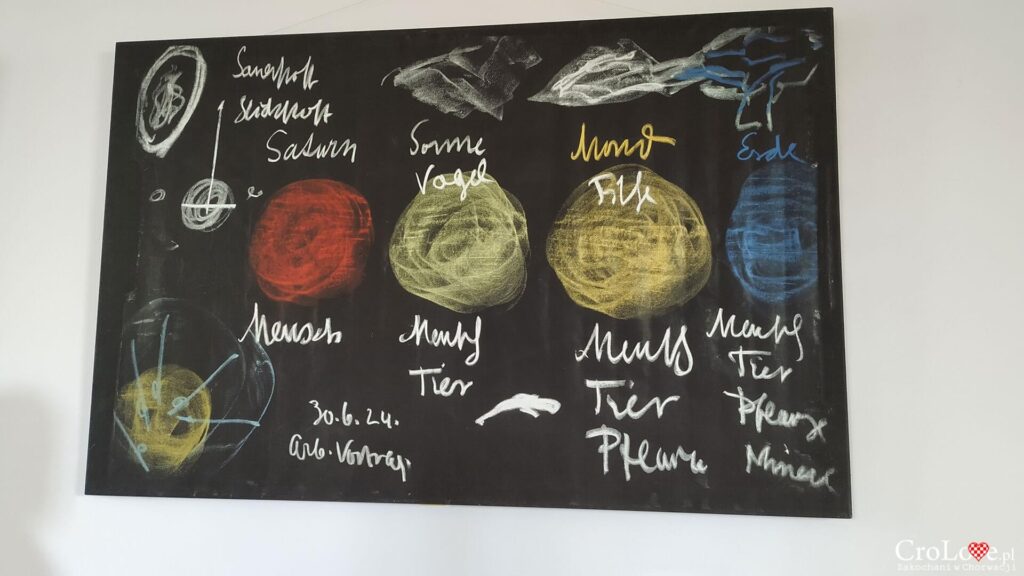 Sauerstoff
Stickstoff
Saturn
Sonne
Vogel
Mond
Erde
Mensch
Mensch
Tier
Mensch
Tier
Pflanze
Mensch
Tier
Pflanze
Minera
30.6.24.
Arb. Vortrag.
CroLove.pl
Zakochani w Chorwacji